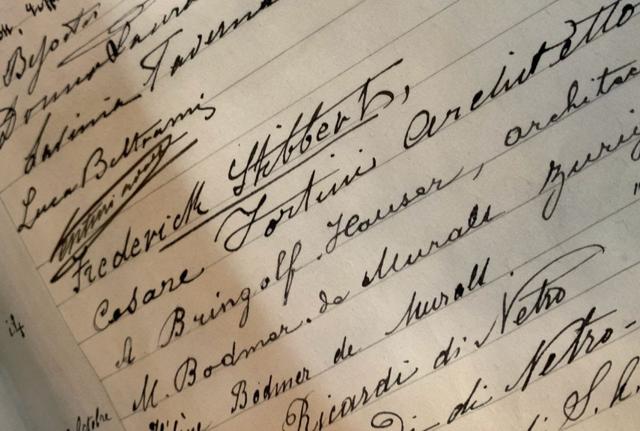 Donna Laura
Lavinia Taverna
Luca Beltrami
Frederick Stibbert,
Cesare Fortini Architetto
A Bringolf Hauser, archite
M. Bodmer. de Muralt Zuri
Bodmer de Muralt.
Ricardi di Netro
di Netro-
di S.